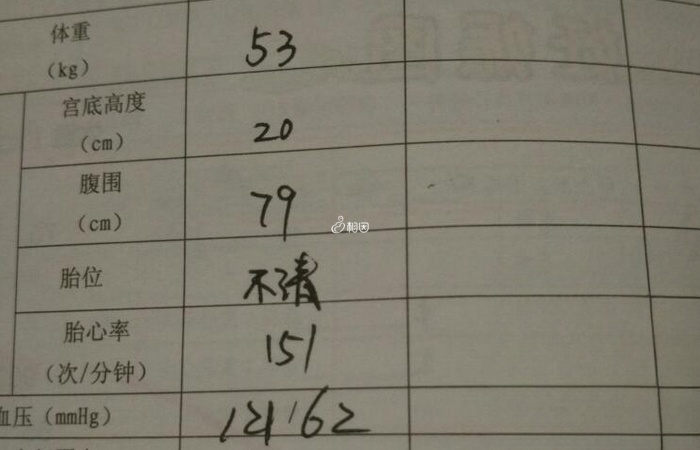 体重
(kg)
53
宫底高度
(cm)
20
腹围
(cm)
79
胎位
不清
胎心率
(次/分钟)
151
血压(mmHg)
121/62